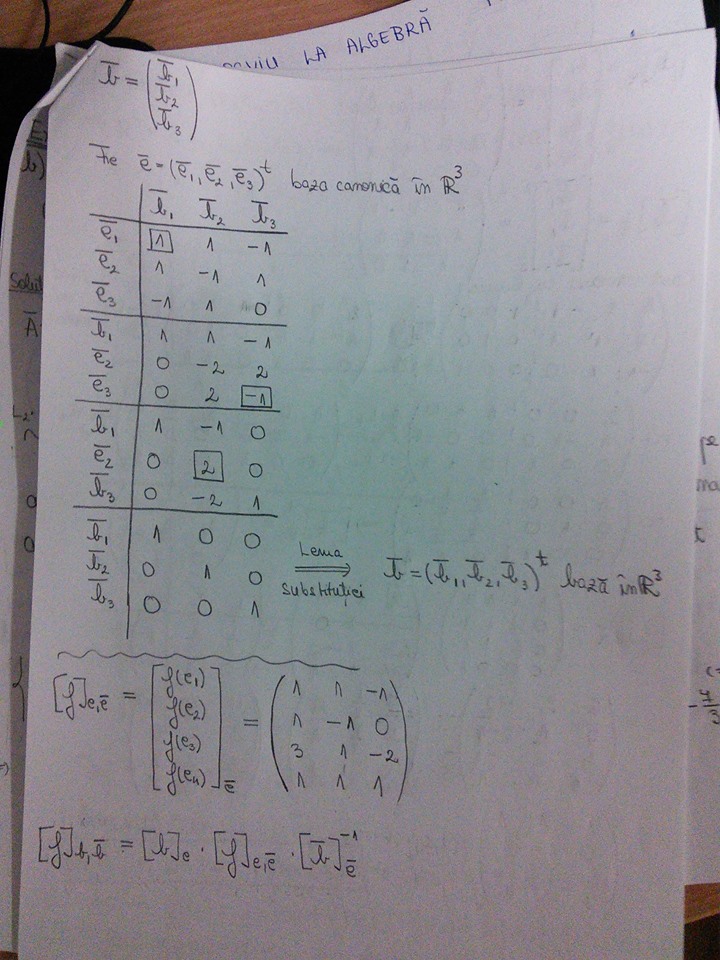 SERVIU LA ALGEBRĂ
b̅ = (b̅₁
b̅₂
b̅₃)
Fie e̅ = (e̅₁, e̅₂, e̅₃)ᵗ baza canonică în ℝ³
b̅₁ b̅₂ b̅₃
e̅₁ 1 1 -1
e̅₂ 1 -1 1
e̅₃ -1 1 0
b̅₁ 1 1 -1
e̅₂ 0 -2 2
e̅₃ 0 2 -1
b̅₁ 1 -1 0
e̅₂ 0 2 0
b̅₃ 0 -2 1
b̅₁ 1 0 0
b̅₂ 0 1 0
b̅₃ 0 0 1
Lema substituției ⟹ b̅ = (b̅₁, b̅₂, b̅₃)ᵗ bază în ℝ³
[f]e,e̅ = [f(e₁)
f(e₂)
f(e₃)
f(e₄)]e̅ = (1 1 -1
1 -1 0
3 1 -2
1 1 1)
[f]b,b̅ = [b]e · [f]e,e̅ · [b̅]e̅⁻¹